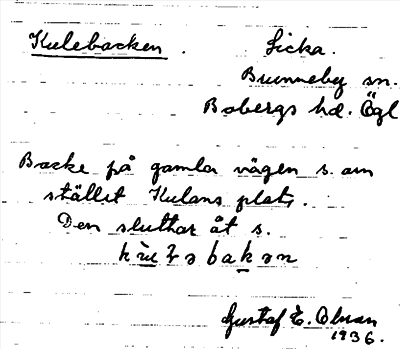 Kulebacken. Licka.
Brunneby sn.
Bobergs hd. Ögl
Backe på gamla vägen s. om
stället Kulans plats.
Den sluttar åt s.
Gustaf E.
1936.